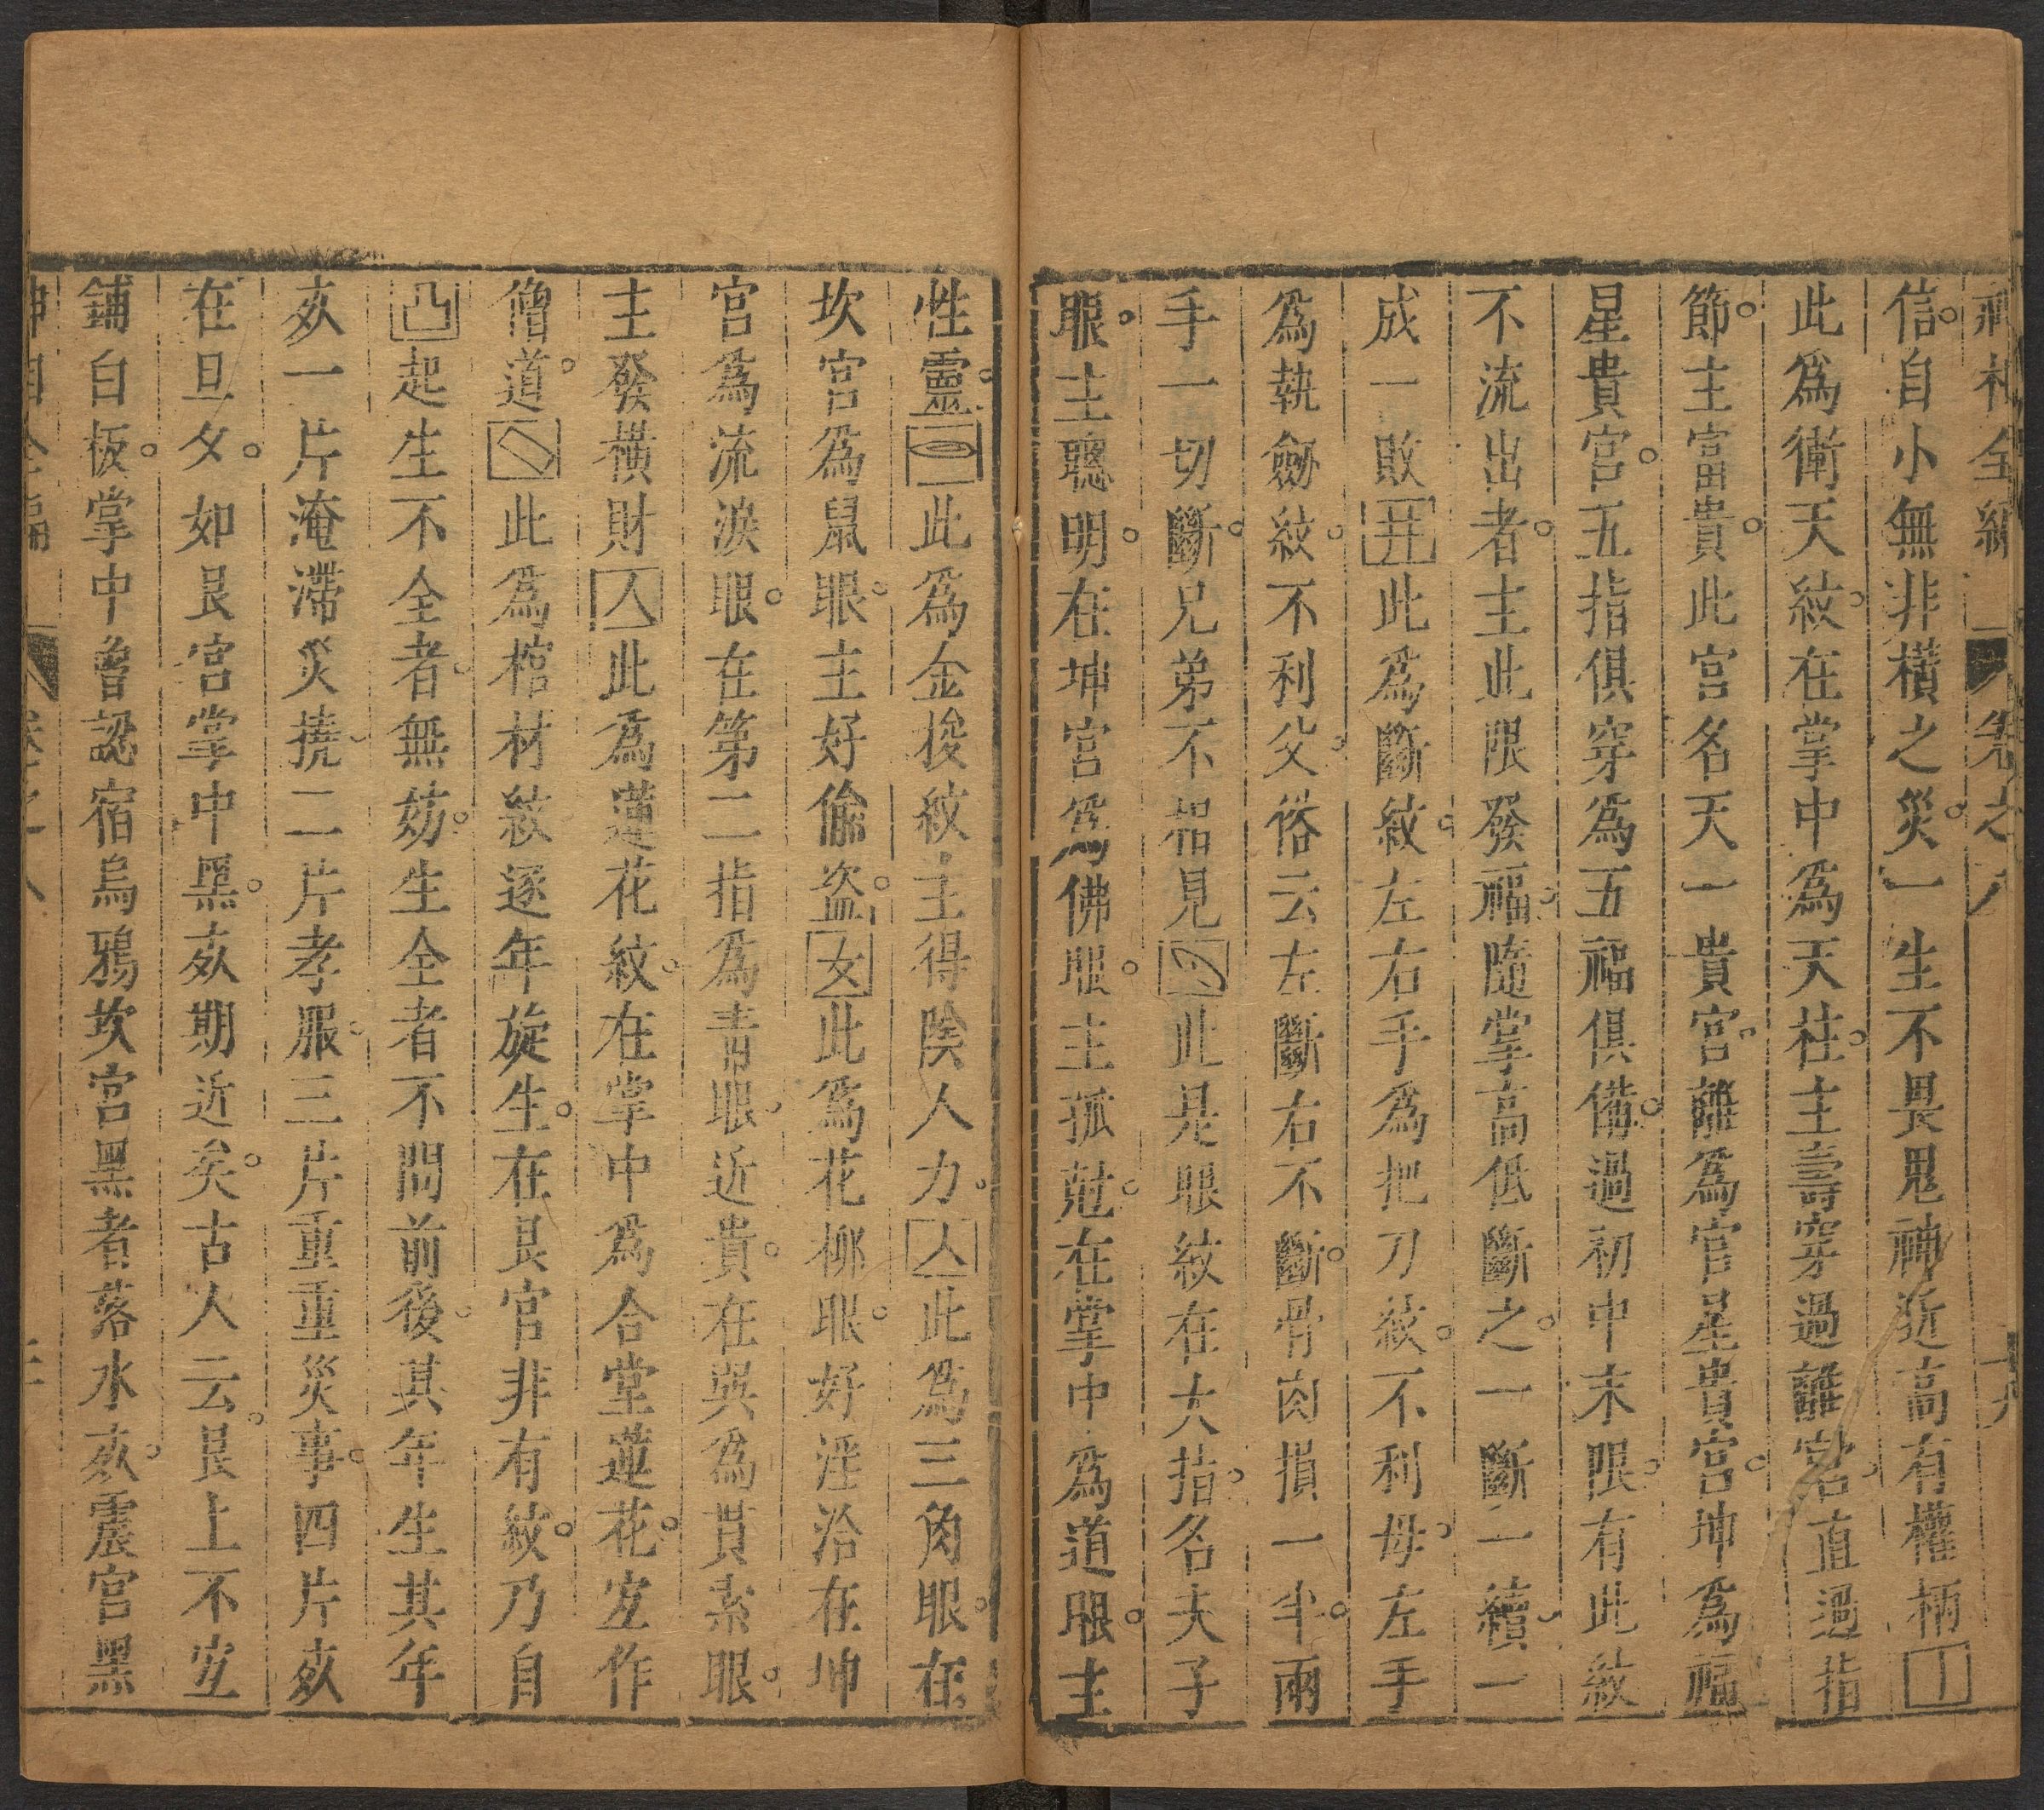 神相全編 卷之八 十九
信自小無非橫之災一生不畏鬼神近高有權柄
此為衝天紋在掌中為天柱主壽穿過離宮直過指
節主富貴此宮名天一貴宮離為官星貴宮坤為福
星貴宮五指俱穿為五福俱備過初中末限有此紋
不流出者主此限發福隨掌高低斷之一斷一續一
成一敗此為斷紋左右手為把刀紋不利母左手
為執劒紋不利父俗云左斷右不斷骨肉損一半兩
手一切斷兄弟不相見此是眼紋在大指名夫子
眼主聰明在坤宮為佛眼主孤尅在掌中為道眼主
性靈此為金梭紋主得陰人力此為三角眼在
坎宮為鼠眼主好偷盜此為花柳眼好淫洽在坤
宮為流淚眼在第二指為青眼近貴在巽為貫索眼
主發橫財此為蓮花紋在掌中為合堂蓮花宜作
僧道此為棺材紋逐年旋生在艮官非有紋乃自
凸起生不全者無妨生全者不問前後其年生其年
死一片淹滯災撓二片孝服三片重重災事四片死
在旦夕如艮宮掌中黑死期近矣古人云艮上不宜
鋪白板掌中會認宿烏鴉坎宮黑者落水死震宮黑